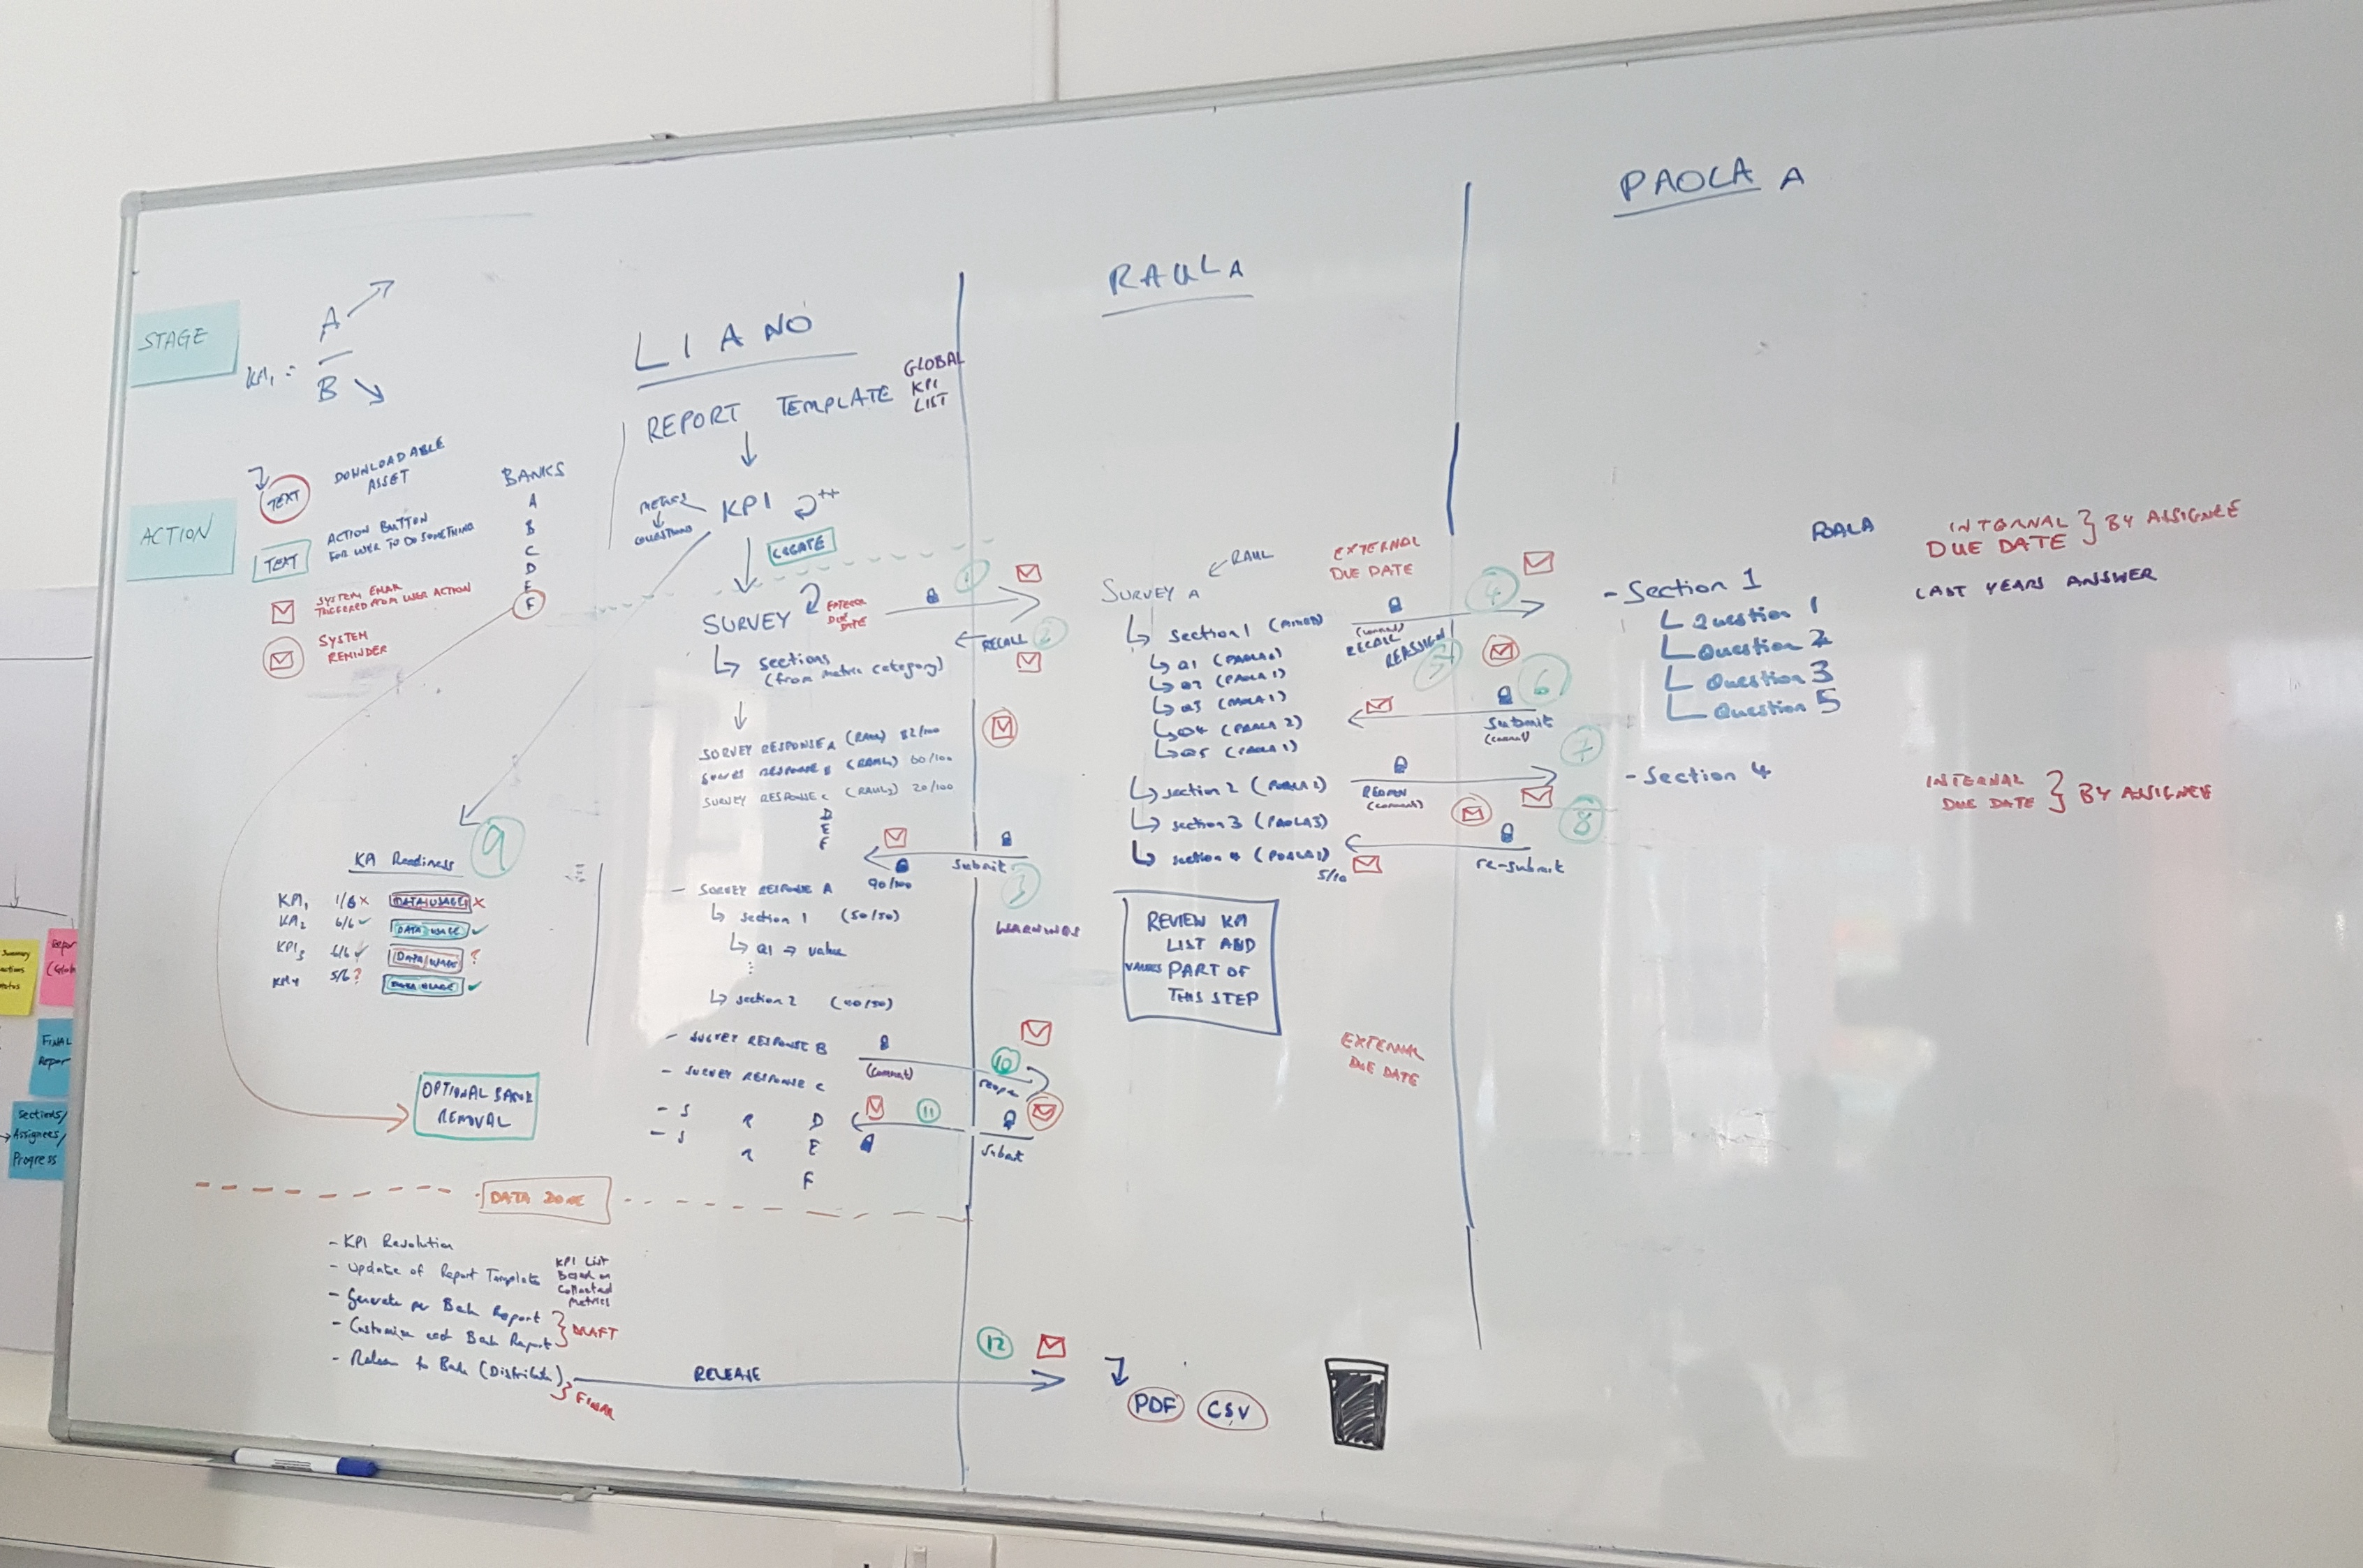 STAGE
A
KPI, =
B
ACTION
TEXT
DOWNLOADABLE
ASSET
TEXT
ACTION BUTTON
FOR USER TO DO SOMETHING
SYSTEM EMAIL
TRIGGERED FROM USER ACTION
SYSTEM
REMINDER
BANKS
A
B
C
D
E
F
LIANO
REPORT TEMPLATE
GLOBAL
KPI
LIST
KPI ++
QUESTIONS
CREATE
SURVEY
EXTERNAL
DUE
DATE
1
RECALL 2
sections
(from metric category)
SURVEY RESPONSE A (RAUL) 82/100
SURVEY RESPONSE B (RAUL2) 60/100
SURVEY RESPONSE C (RAUL3) 20/100
D
E
F
submit
90/100
3
- SURVEY RESPONSE A
section 1 (50/50)
Q1 → value
section 2 (40/50)
- SURVEY RESPONSE B
- SURVEY RESPONSE C
- S R D
- S R E
F
(comment)
10
reopen
11
submit
9
KPI Readiness
KPI1 1/6 x DATA USAGE x
KPI2 6/6 ✓ DATA USAGE ✓
KPI3 6/6 ✓ DATA USAGE ?
KPI4 5/6 ? DATA USAGE ✓
OPTIONAL BANK
REMOVAL
DATA DONE
- KPI Resolution
- Update of Report Template
KPI List
Based on
Collected
Metrics
- Generate per Bank Report
- Customise each Bank Report
DRAFT
- Release to Bank (Distribute)
FINAL
RELEASE
12
PDF
CSV
RAUL A
RAUL
SURVEY A
EXTERNAL
DUE DATE
section 1
Q1 (PAOLA1)
Q2 (PAOLA1)
Q3 (PAOLA1)
Q4 (PAOLA 2)
Q5 (PAOLA 1)
section 2 (PAOLA 2)
section 3 (PAOLA3)
section 4 (PAOLA1)
5/10
(comment)
RECALL
REASSIGN
4
5
6
submit
(comment)
7
REOPEN
(comment)
8
re-submit
WARNINGS
REVIEW KPI
LIST AND
VALUES PART OF
THIS STEP
EXTERNAL
DUE DATE
PAOLA A
PAOLA
INTERNAL
DUE DATE
BY ASSIGNEE
LAST YEARS ANSWER
- Section 1
Question 1
Question 2
Question 3
Question 5
- Section 4
INTERNAL
DUE DATE
BY ASSIGNEE
Summary
FINAL
Repor
Sections/
Assignees/
Progress